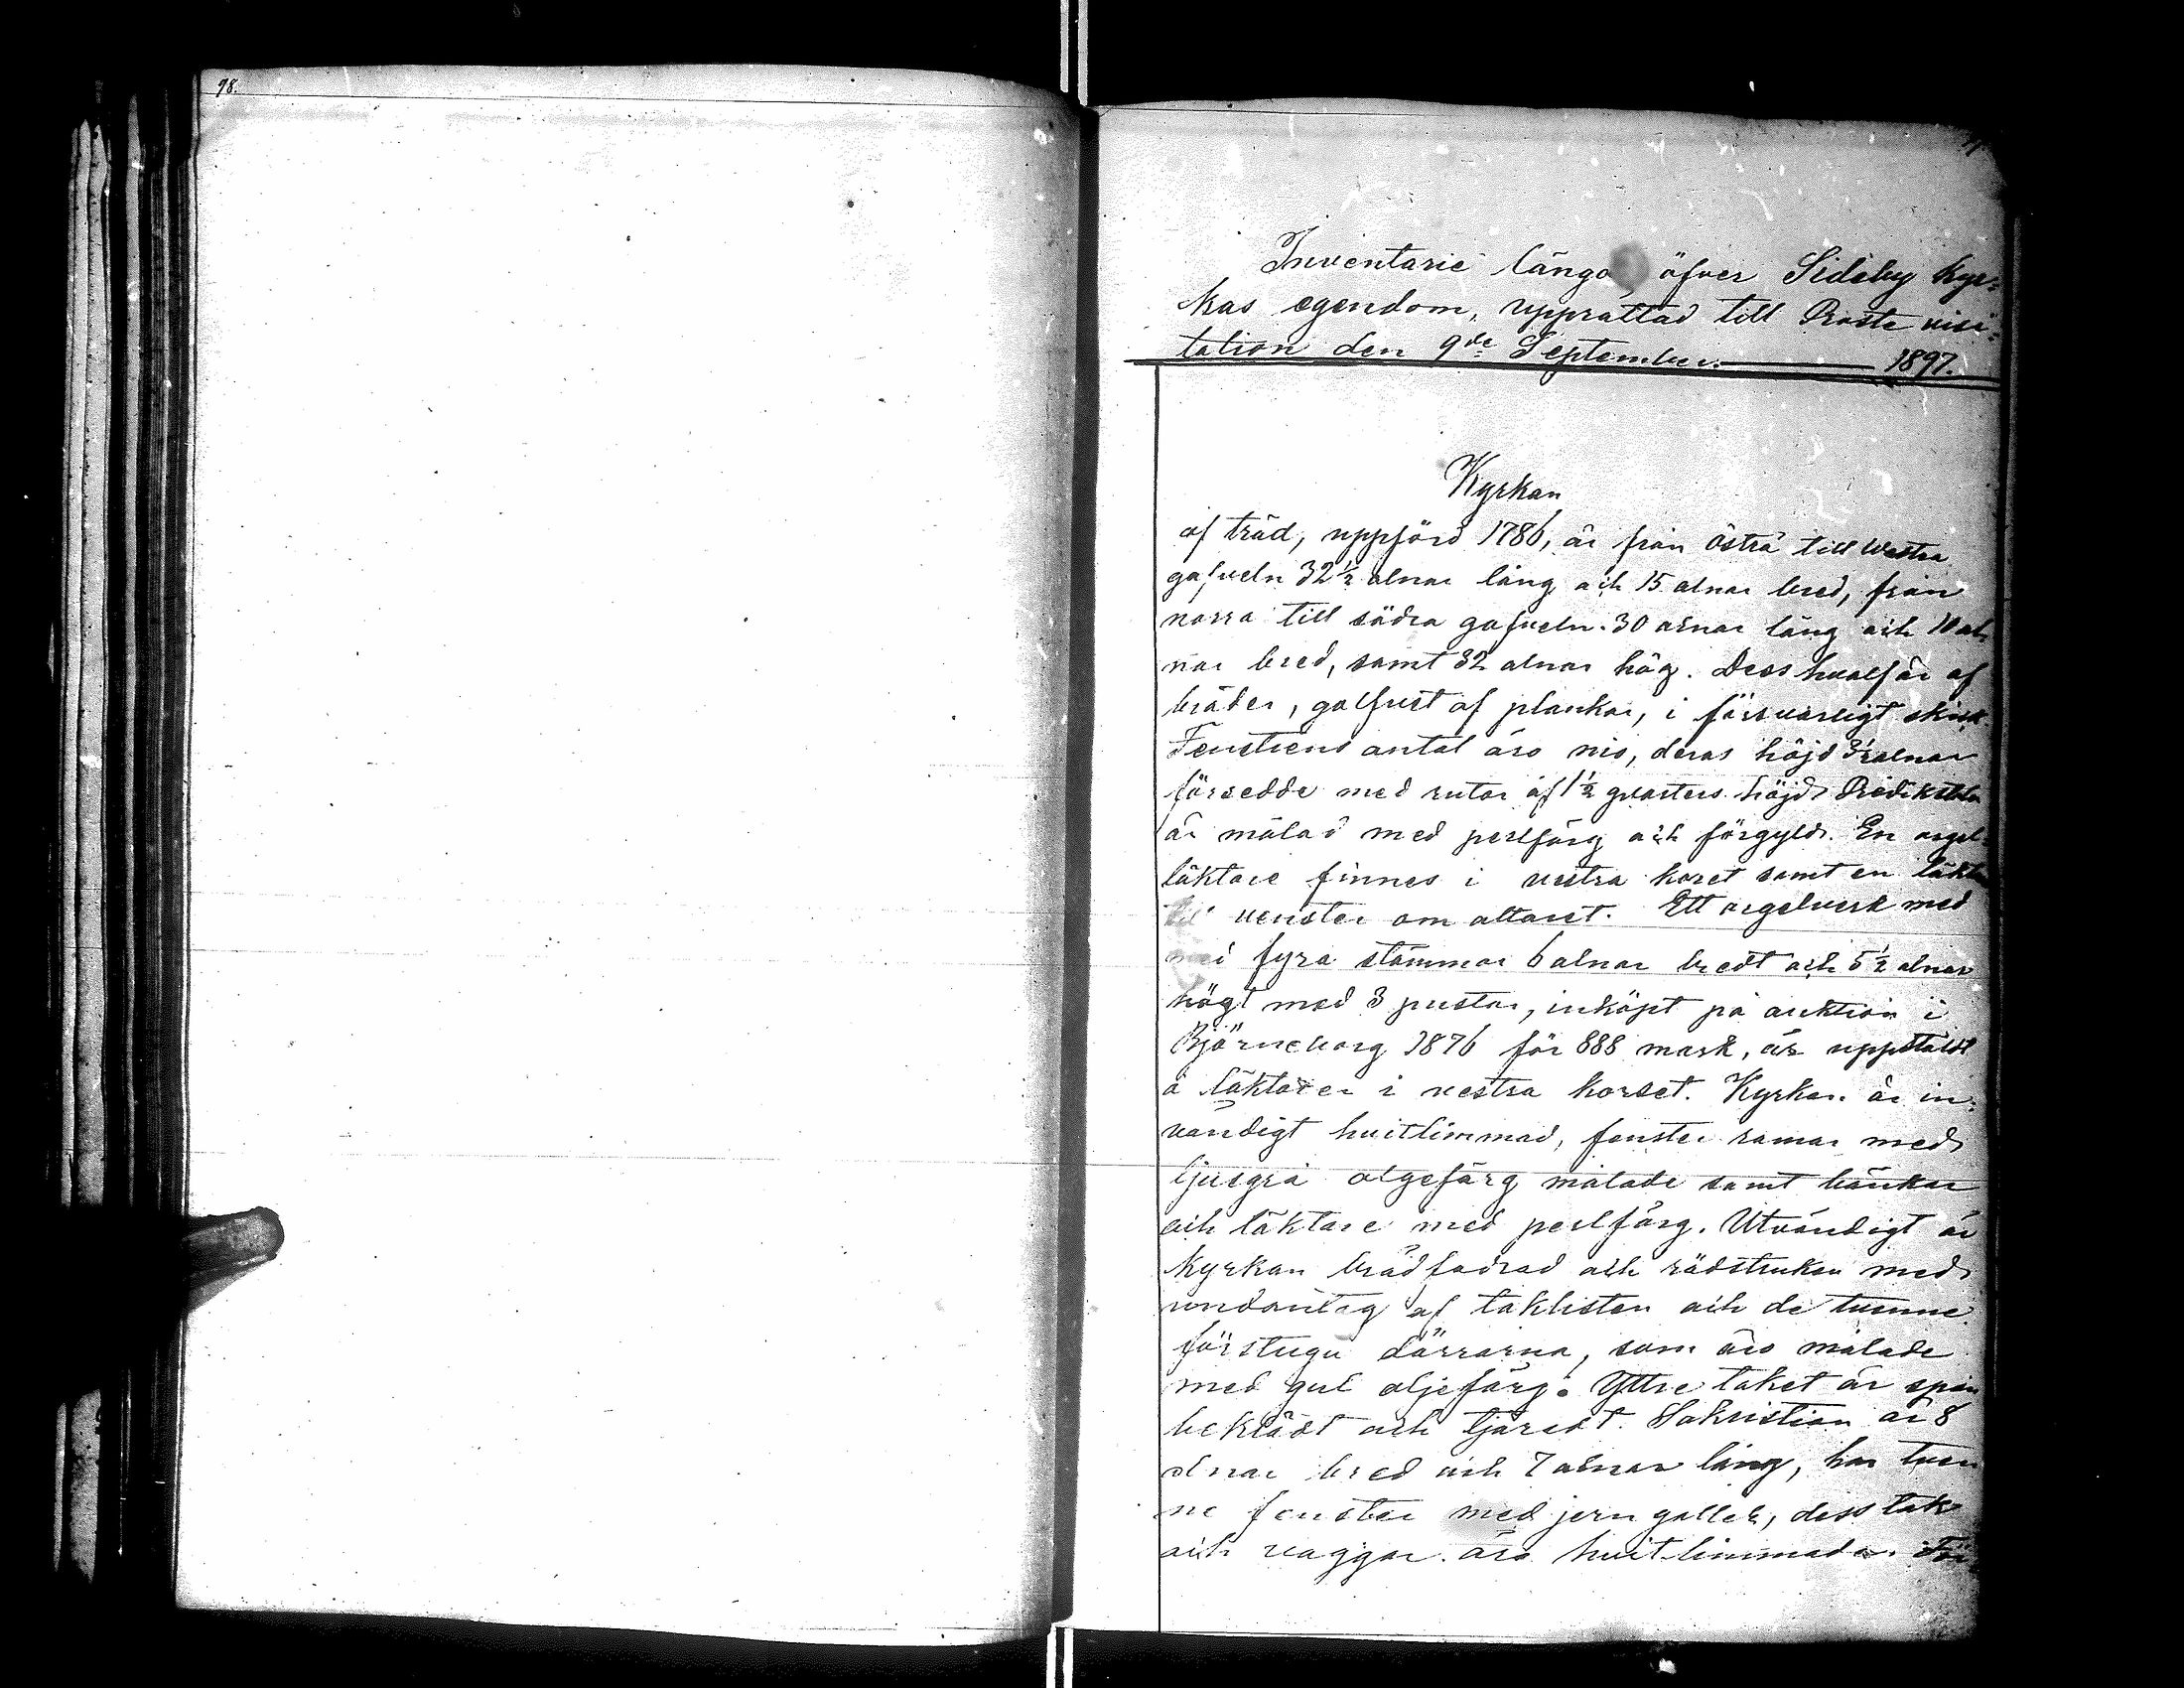 98.
Inventarie längd öfver Sideby kyr=
kas egendom, upprättad till Prosts visi=
tation den 9de September. 1897.
Kyrkan
af träd, uppförd 1786, är från östra till westra
gafveln 32½ alnar lång och 15 alnar bred, från
norra till södra gafveln 30 alnar lång och 10 al
nar bred, samt 32 alnar hög. Dess hvalf är af
bräder, golfvet af plankar, i försvarligt skick.
Fenstrens antal äro nio, deras höjd 3½ alnar
försedde med rutor af 1½ qvarters höjd. Predikstolen
är målad med perlfärg och förgyld. En orgel
läktare finnes i vestra koret samt en läktare
till venster om altaret. Ett orgelverk med
med fyra stämmor 6 alnar bredt och 5½ alnar
högt med 3 pustar, inköpt på auktion i
Björneborg 1876 för 888 mark, är uppstäldt
å läktaren i vestra korset. Kyrkan är in=
vändigt hvitlimmad, fenster ramar med
ljusgrå oljefärg målade samt bänkar
och läktare med perlfärg. Utvändigt är
kyrkan brädfodrad och rödstruken med
undantag af taklisten och de tvenne
förstugu dörrarna, som äro målade
med gul oljefärg. Yttre taket är spån
beklädt och tjäradt. Sakristian är 8
alnar bred och 7 alnar lång, har tven
ne fenster med jern galler, dess tak
och väggar äro hvit limmade. För